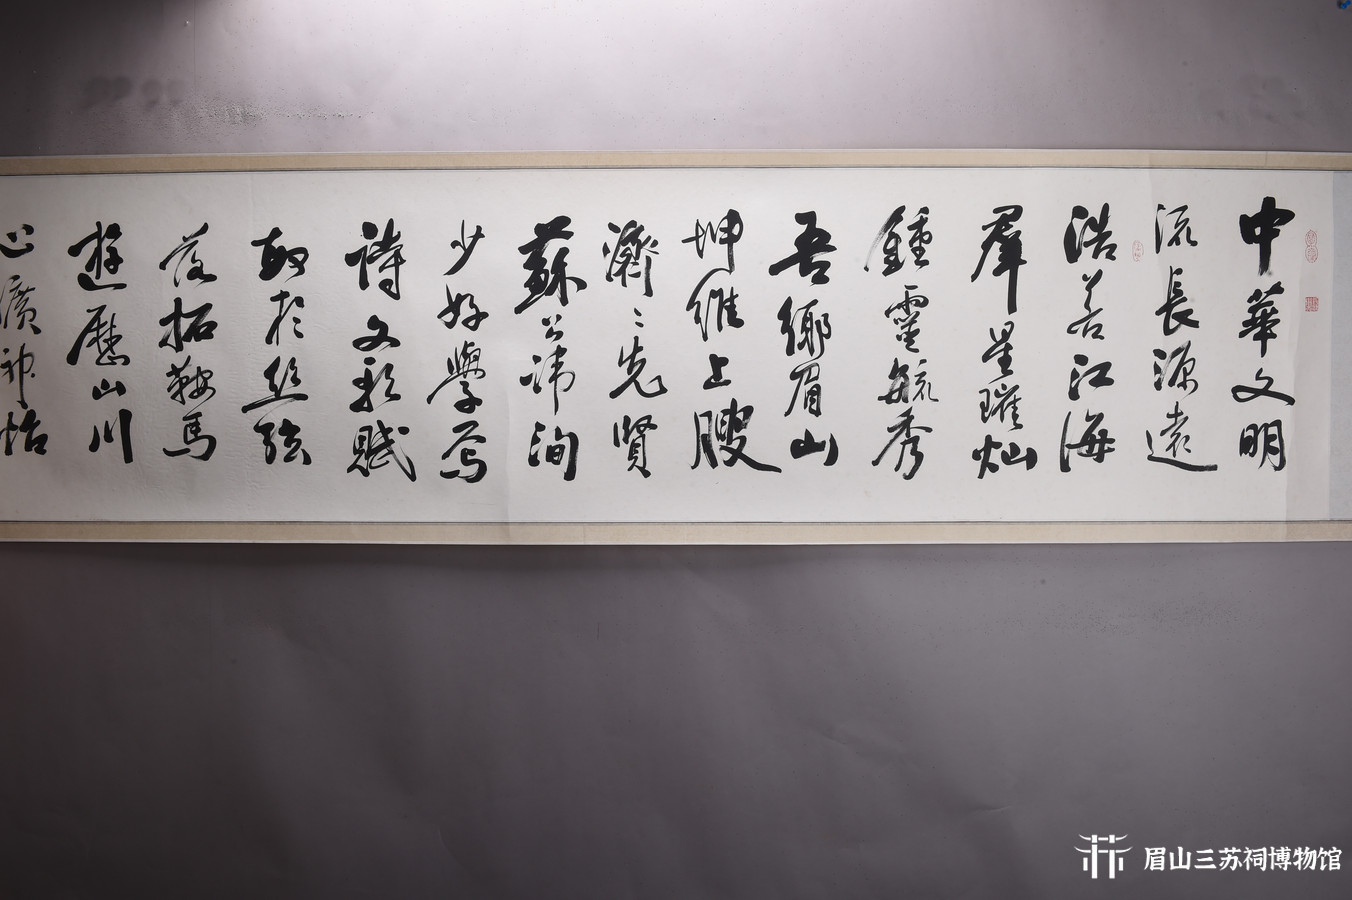 中華文明
流長源遠
浩若江海
羣星璀灿
鍾靈毓秀
吾鄉眉山
坤維上腴
濟〻先賢
蘇公諱洵
少好學焉
詩文歌賦
耽於丝弦
落拓鞍馬
遊歷山川
心廣神怡
眉山三苏祠博物馆